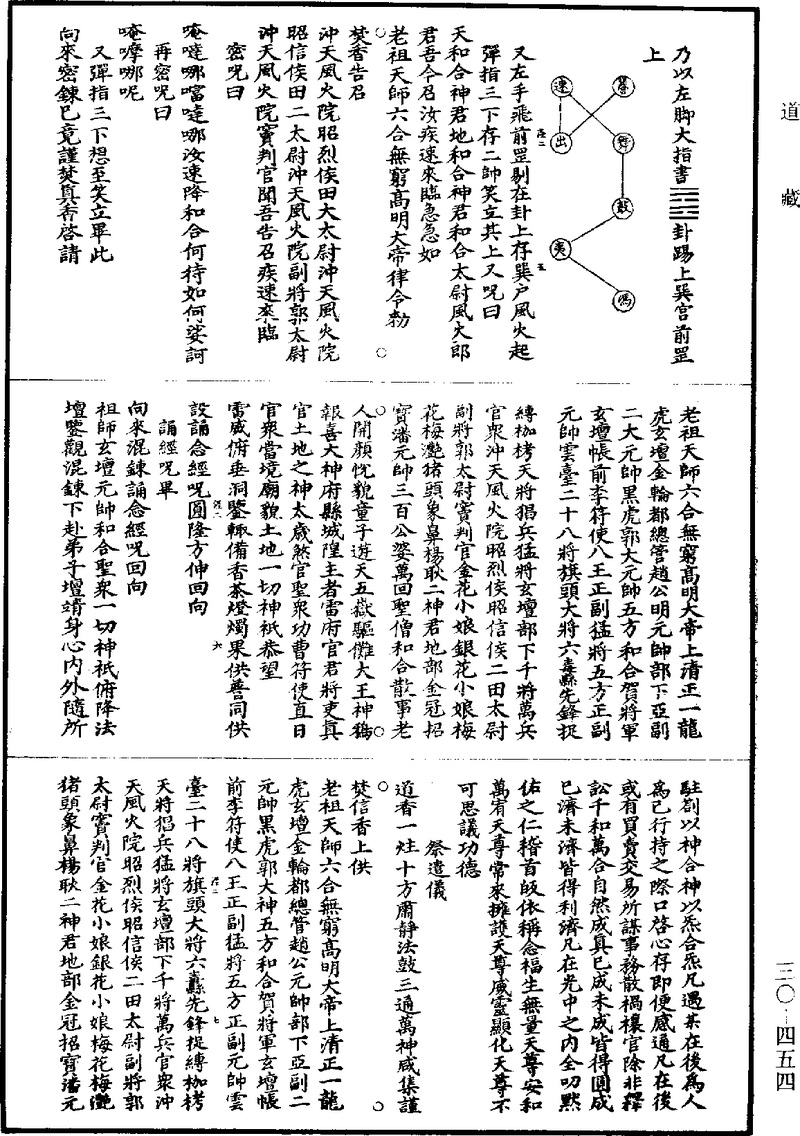 道藏
乃以左脚大指書䷸卦踢上巽宮前罡
上
速 暮
出 舞
鼓
夷
馮
又左手飛前罡剔在卦上存巽户風火起
彈指三下存二帥笑立其上又呪曰
天和合神君地和合神君和合太尉風火郎
君吾今召汝疾速來臨急急如
老祖天師六合無窮高明大帝律令勑
焚香告召
沖天風火院昭烈侯田大太尉沖天風火院
昭信侯田二太尉沖天風火院副將郭太尉
沖天風火院竇判官聞吾告召疾速來臨
密呪曰
唵噠哪㗳噠哪汝速降和合何待如何娑訶
再密呪曰
唵摩哪呢
又彈指三下想至笑立畢此
向來密鍊已竟謹焚真香啓請
老祖天師六合無窮高明大帝上清正一龍
虎玄壇金輪都總管趙公明元帥部下亞副
二大元帥黑虎郭大元帥五方和合賀將軍
玄壇帳前李符使八王正副猛將五方正副
元帥雲臺二十八將旗頭大將六毒纛先鋒捉
縛枷栲天將猖兵猛將玄壇部下千將萬兵
官衆沖天風火院昭烈侯昭信侯二田太尉
副將郭太尉竇判官金花小娘銀花小娘梅
花梅灔猪頭象鼻楊耿二神君地部金冠招
寶潘元帥三百公婆萬回聖僧和合散事老
人開顏悅貌童子遊天五嶽驅儺大王神鵶
報喜大神府縣城隍主者雷府官君將吏真
官土地之神太歲煞官聖衆功曹符使直日
官衆當境廟貌土地一切神祇恭望
雷威俯垂洞鑒輙備香茶燈燭果供善同供
設誦念經呪圓隆方伸回向
誦經呪畢
向來混鍊誦念經呪回向
祖師玄壇元帥和合聖衆一切神祇俯降法
壇鑒觀混鍊下赴弟子壇靖身心內外隨所
駐劄以神合神以炁合炁凡遇某在後爲人
爲己行持之際口啓心存即便感通凡在後
或有買賣交易所謀事務散禍禳官除非釋
訟千和萬合自然成真已成未成皆得圓成
已濟未濟皆得利濟凡在光中之內全叨默
佑之仁稽首皈依稱念福生無量天尊安和
萬宥天尊常來擁護天尊威靈顯化天尊不
可思議功德
祭遣儀
道香一炷十方肅靜法鼓三通萬神咸集謹
焚信香上供
老祖天師六合無窮高明大帝上清正一龍
虎玄壇金輪都總管趙公元帥部下亞副二
元帥黑虎郭大神五方和合賀將軍玄壇帳
前李符使八王正副猛將五方正副元帥雲
臺二十八將旗頭大將六纛先鋒捉縛枷栲
天將猖兵猛將玄壇部下千將萬兵官衆沖
天風火院昭烈侯昭信侯二田太尉副將郭
太尉竇判官金花小娘銀花小娘梅花梅灔
猪頭象鼻楊耿二神君地部金冠招寶潘元
三〇-四五四